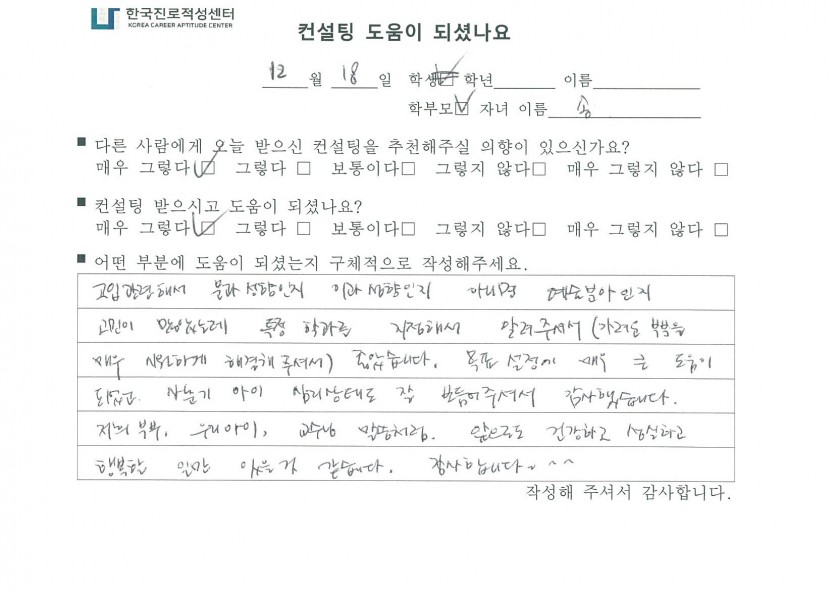 한국진로적성센터
KOREA CAREER APTITUDE CENTER
컨설팅 도움이 되셨나요
12 월 18 일 학생☑ 학년 이름
학부모☑ 자녀 이름 송
■ 다른 사람에게 오늘 받으신 컨설팅을 추천해주실 의향이 있으신가요?
매우 그렇다☑ 그렇다 □ 보통이다□ 그렇지 않다□ 매우 그렇지 않다 □
■ 컨설팅 받으시고 도움이 되셨나요?
매우 그렇다☑ 그렇다 □ 보통이다□ 그렇지 않다□ 매우 그렇지 않다 □
■ 어떤 부분에 도움이 되셨는지 구체적으로 작성해주세요.
고입관련해서 문과성향인지 이과성향인지 아니면 예술분야인지
고민이 많았었는데 특정 학과를 지정해서 알려주셔서 (가려운 부분을
매우 시원하게 해결해주셔서) 좋았습니다. 목표 설정에 매우 큰 도움이
되었고 사춘기 아이 심리상태도 잘 보듬어주셔서 감사했습니다.
저희 부부, 우리아이, 교수님 말씀처럼. 앞으로도 건강하고 성실하고
행복할 일만 있을것 같습니다. 감사합니다~ ^^
작성해 주셔서 감사합니다.